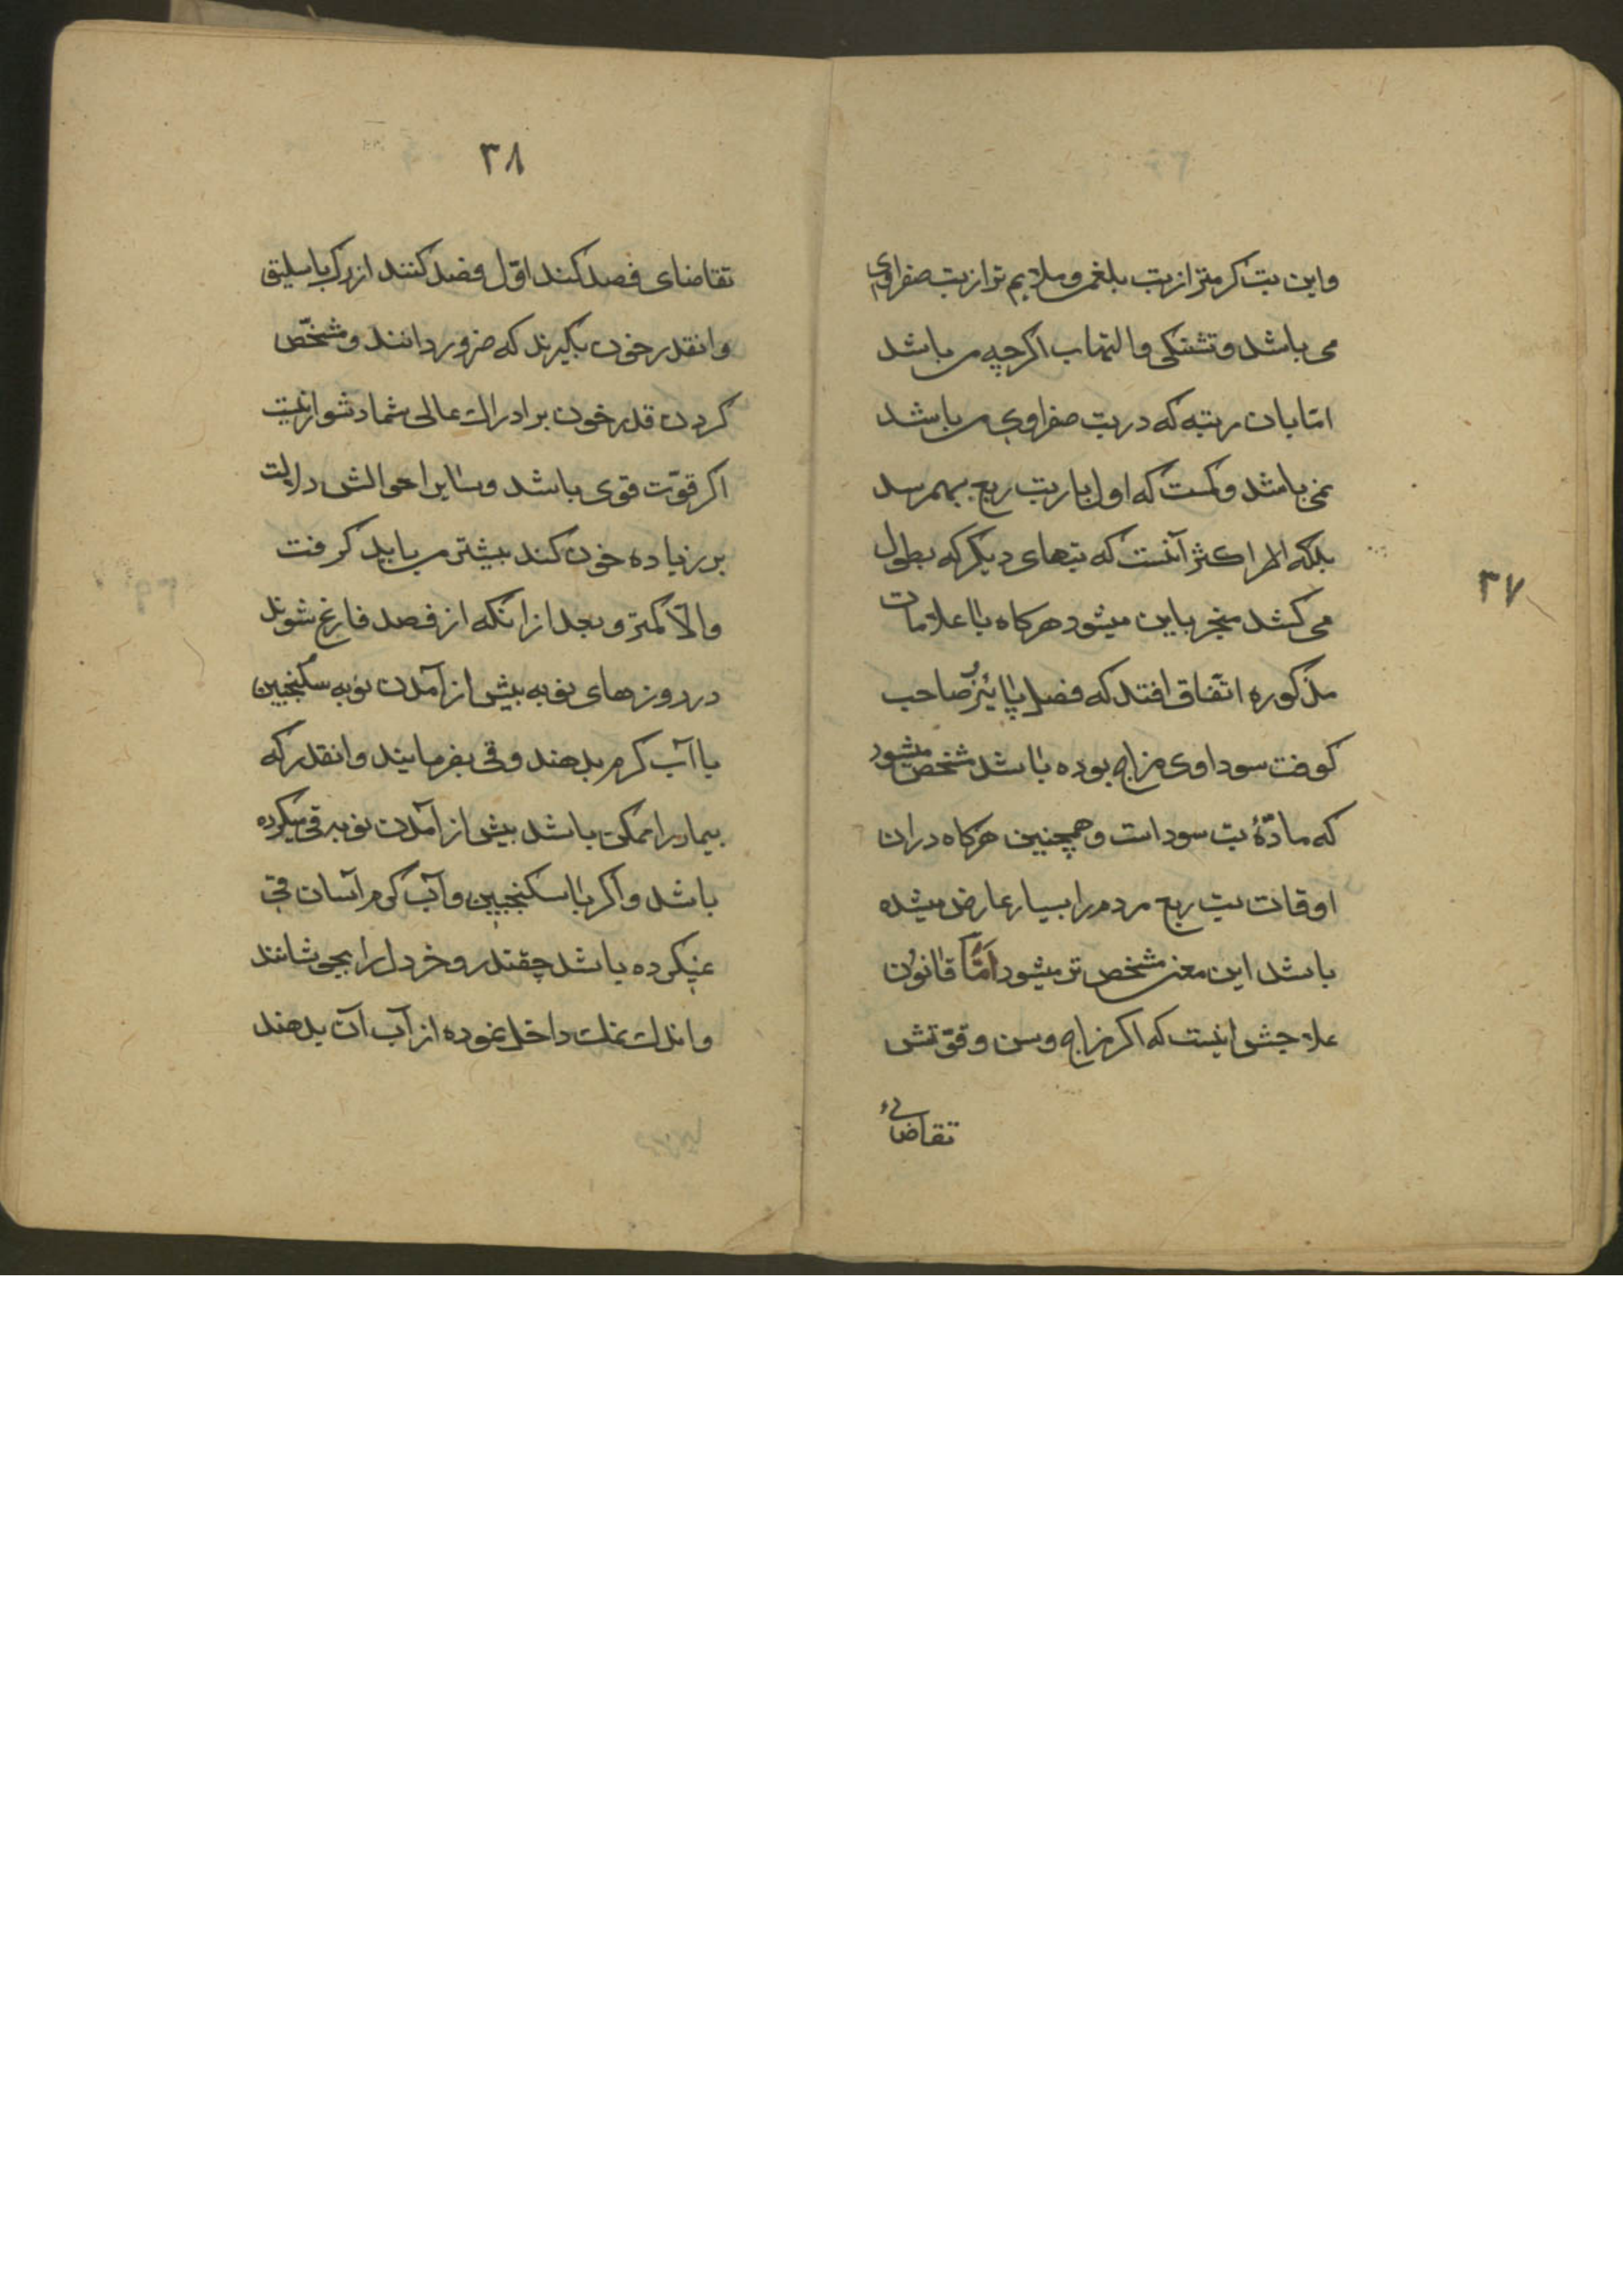 ۳۷
واین تب کرمتر از تب بلغمی و ملایم تر از تب صفراوی
می باشد و تشنکی و التهاب اکرچه می باشد
امّا بان رتبه که در تب صفراوی می باشد
نمی باشد و کمست که اول بار تب ربع بهمرسد
بلکه اکثر آنست که تبهای دیکر که بطول
می کشد منجر باین میشود هرکاه با علامات
مذکوره اتّفاق افتد که فصل پائیز و صاحب
کوفت سوداوی مزاج بوده باشد مشخص میشود
که مادّهٔ تب سوداست و همچنین هرکاه دران
اوقات تب ربع مردم را بسیار عارض میشده
باشد این معنی مشخص تر میشود امّا قانون
علاجش اینست که اکر مزاج و سن و قوّتش
تقاضای
۳۸
تقاضای فصد کند اوّل فصد کنند از رک باسلیق
وانقدر خون بکیرند که ضرور دانند و مشخّص
کردن قدر خون بر ادراک عالی شما دشوار نیست
اکر قوّت قوی باشد و سایر احوالش دلالت
بر زیاده خون کند بیشتر می باید کرفت
والّا کمتر و بعد از انکه از فصد فارغ شوند
در روزهای نوبه پیش از آمدن نوبه سکنجبین
با آب کرم بدهند و قی بفرمایند وانقدر که
بیمار را ممکن باشد پیش از آمدن نوبه قی میکرده
باشد و اکر با سکنجبین و آب کرم آسان قی
نمیکرده باشد چقندر و خردل را بجوشانند
واندک نمک داخل نموده از آب آن بدهند